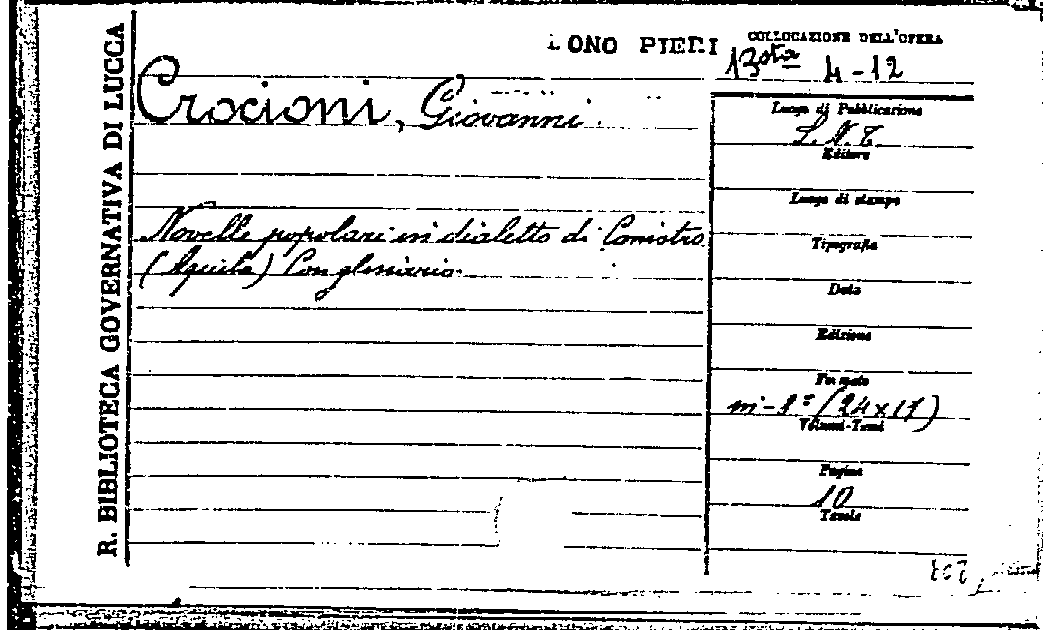 R. BIBLIOTECA GOVERNATIVA DI LUCCA
ONO PIERI
COLLOCAZIONE DELL'OPERA
Bsta 4-12
Crocioni, Giovanni.
Luogo di Pubblicazione
S. N. T.
Editore
Luogo di stampa
Novelle popolari in dialetto di Canistro
(Aquila) Con glossario.
Tipografia
Data
Edizione
Formato
in-8° (24x17)
Volumi-Tomi
Pagine
10
Tavole